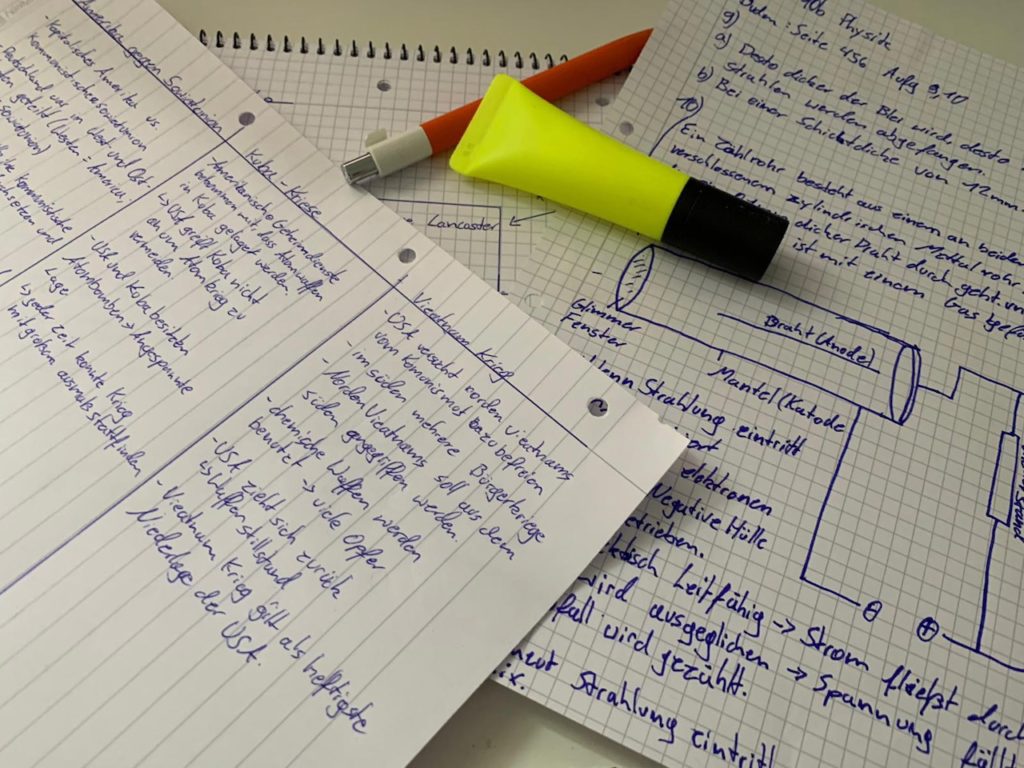 gegen Sowjetunion
Kapitalisches Amerika vs.
Kommunistische Sowjetunion
in West und Ost-
geteilt (Westen = Amerika,
Sowjetunion)
kommunistische
und
Kuba-Kriese
Amerikanische Geheimdienste
bekommen mit das Atomwaffen
in Kuba gelagert werden.
↳ USA greift Kuba nicht
an um Atomkrieg zu
vermeiden
- USA und Kuba besitzen
Atombomben → Angespannte
Lage
↳ jeder Zeit könnte Krieg
mit großem ausmaß stattfinden
Vieatnam Krieg
- USA versucht norden Vieatnams
vom Kommunismus zu befreien
- im süden mehrere Bürgerkriege
- Norden Vieatnams soll aus dem
süden angegriffen werden.
- chemische Waffen werden
benutzt → viele Opfer
- USA zieht sich zurück
↳ Waffenstillstand
- Vieatnam Krieg gillt als heftigste
Niederlage der USA.
Lancaster
10b Physik
Seite 456 Aufg 9,10
9)
a) Desto dicker der Blei wird desto
Strahlen werden abgefangen.
b) Bei einer Schichtdicke von 12mm
10)
Ein Zählrohr besteht aus einem an beiden
verschlossenem zylindrischen Mettalrohr
dicher Draht durch geht und
ist mit einem Gas gefü
Glimmer
Fenster
Draht (Anode)
Mantel (Katode
⊖
⊕
Wenn Strahlung eintritt
elektronen
negative Hülle
etrieben.
Leitfähig → Strom fließt durch
wird ausgeglichen → Spannung fällt
fall wird gezählt.
neut Strahlung eintritt